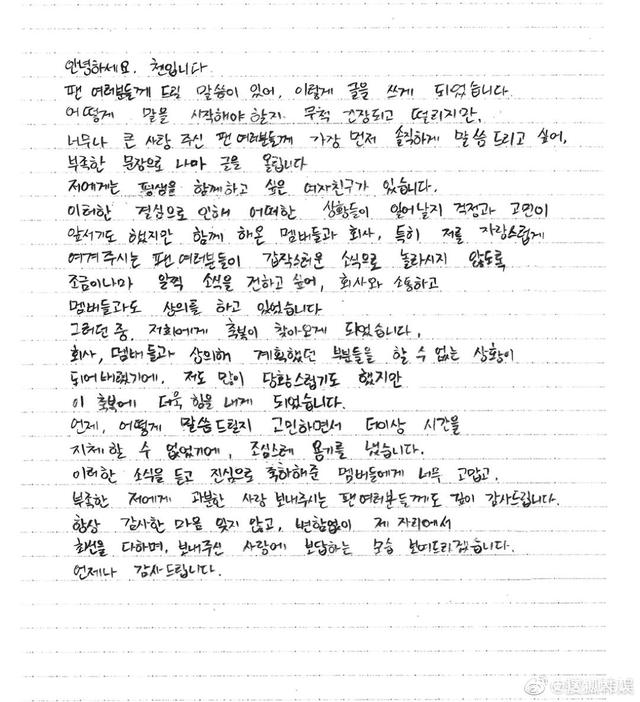 안녕하세요. 첸입니다.
팬 여러분들께 드릴 말씀이 있어, 이렇게 글을 쓰게 되었습니다.
어떻게 말을 시작해야 할지 무척 긴장되고 떨리지만,
너무나 큰 사랑 주신 팬 여러분들께 가장 먼저 솔직하게 말씀드리고 싶어,
부족한 문장으로 나마 글을 올립니다
저에게는 평생을 함께하고 싶은 여자친구가 있습니다.
이러한 결심으로 인해 어떠한 상황들이 일어날지 걱정과 고민이
앞서기도 했지만 함께 해온 멤버들과 회사, 특히 저를 자랑스럽게
여겨주시는 팬 여러분들이 갑작스러운 소식으로 놀라시지 않도록
조금이나마 일찍 소식을 전하고 싶어, 회사와 소통하고
멤버들과도 상의를 하고 있었습니다
그러던 중, 저희에게 축복이 찾아오게 되었습니다.
회사, 멤버들과 상의해 계획했던 부분들을 할 수 없는 상황이
되어버렸기에. 저도 많이 당황스럽기도 했지만
이 축복에 더욱 힘을 내게 되었습니다.
언제, 어떻게 말씀드릴지 고민하면서 더이상 시간을
지체할 수 없었기에, 조심스레 용기를 냈습니다.
이러한 소식을 듣고 진심으로 축하해준 멤버들에게 너무 고맙고,
부족한 저에게 과분한 사랑 보내주시는 팬 여러분들께도 깊이 감사드립니다.
항상 감사한 마음 잊지 않고, 변함없이 제 자리에서
최선을 다하며, 보내주신 사랑에 보답하는 모습 보여드리겠습니다.
언제나 감사드립니다.
@搜狐韩娱